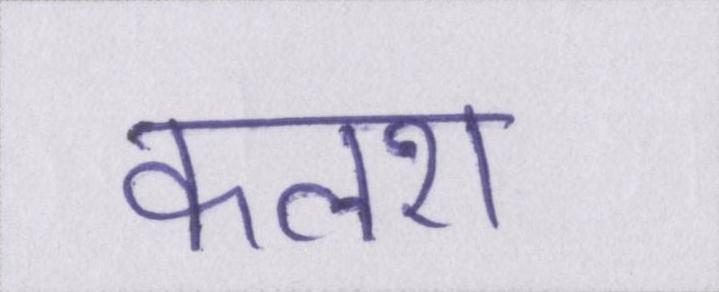 कलश